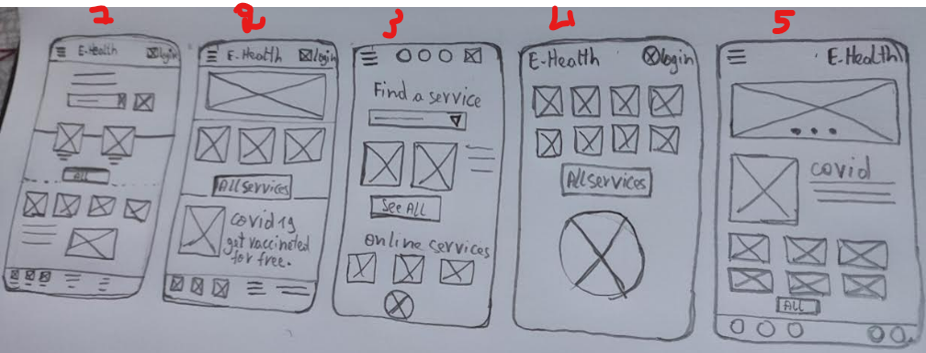 1 2 3 4 5
E-Health
login
All
E-Health
login
All services
covid 19
get vaccinated
for free.
Find a service
See All
online services
E-Health
login
All services
E-Health
covid
All